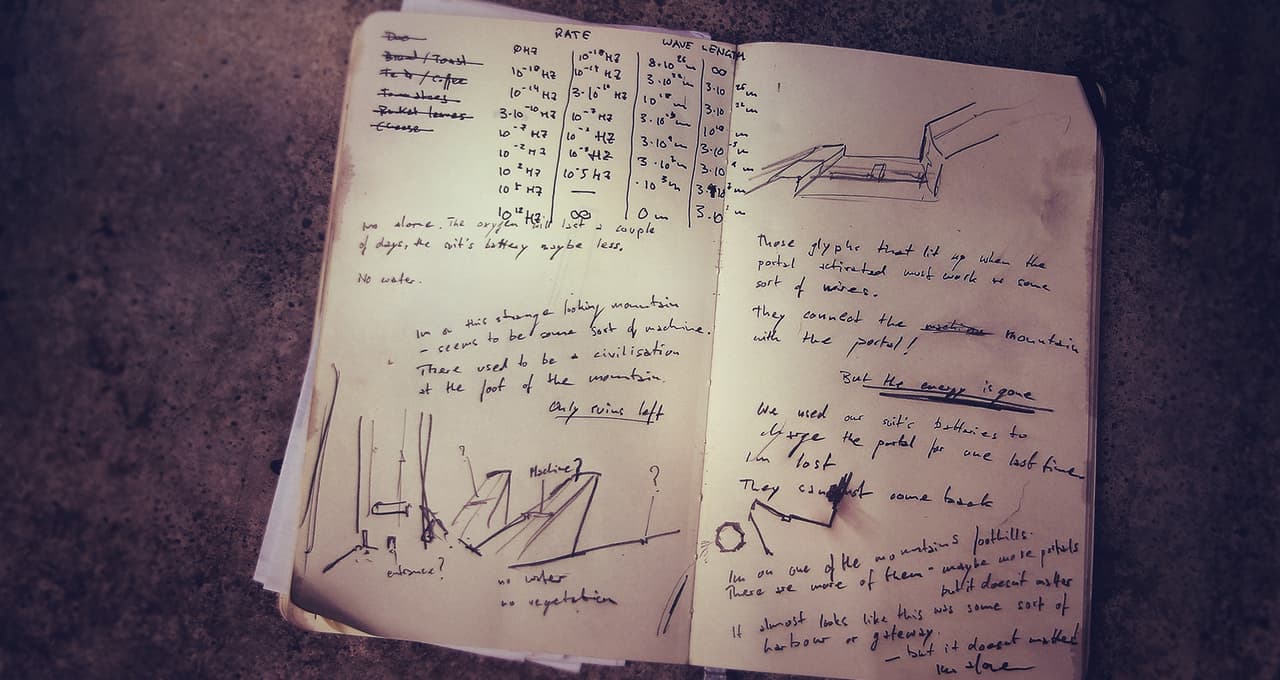 Bread / Toast
Tea / Coffee
Tomatoes
Rocket leaves
Cheese
RATE WAVE LENGTH
0HZ 10⁻¹⁸HZ 8·10²⁶m ∞
10⁻¹⁸HZ 10⁻¹⁴HZ 3·10²²m 3·10²⁵m
10⁻¹⁴HZ 3·10⁻¹⁰HZ 10¹⁸m 3·10²²m
3·10⁻¹⁰HZ 10⁻⁷HZ 10¹⁸m
10⁻⁷HZ HZ 3·10⁹m
10⁻²HZ HZ
10²HZ 10⁻⁵HZ 10³m
10⁵HZ —
10¹²HZ ∞ 0m
I'm alone. The oxygen will last a couple
of days, the suit's battery maybe less.
No water.
Im on this strange looking mountain
– seems to be some sort of machine.
There used to be a civilisation
at the foot of the mountain.
Only ruins left
?
Machine?
?
entrance?
no water
no vegetation
Those glyphs that lit up when the
portal activated must work as some
sort of wires.
They connect the machine mountain
with the portal!
But the energy is gone
We used our suit's batteries to
charge the portal for one last time
Im lost
They can just come back
Im on one of the mountains foothills.
There are more of them – maybe more portals
but it doesnt matter
It almost looks like this was some sort of
harbour or gateway.
– but it doesnt matter
Im alone